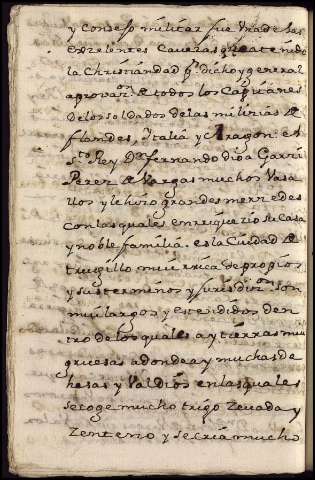 y Consejo militar fue Una de las
exzelentes Caveras que a tenido
la Christiandad Pr. dicho y general
aprovaon. de todos los Capitanes
de los soldados de las milizias de
flandes, Ytalia y Aragon: el
Sto. Rey Dn. fernando dio a Garzi
Perez de Vargas muchos Vasa
llos y le hizo grandes merzedes
con las quales enrriquezio su Casa
y noble familia. es la Ciudad de
truxillo mui rrica de propios
y sus terminos y Jurisdizon. son
mui largos y estendidos den
tro de los quales ay tierras mui
gruesas adonde ay muchas de
hesas y Valdios en las quales
se coge mucho trigo Zevada y
Zenteno y se cria mucho